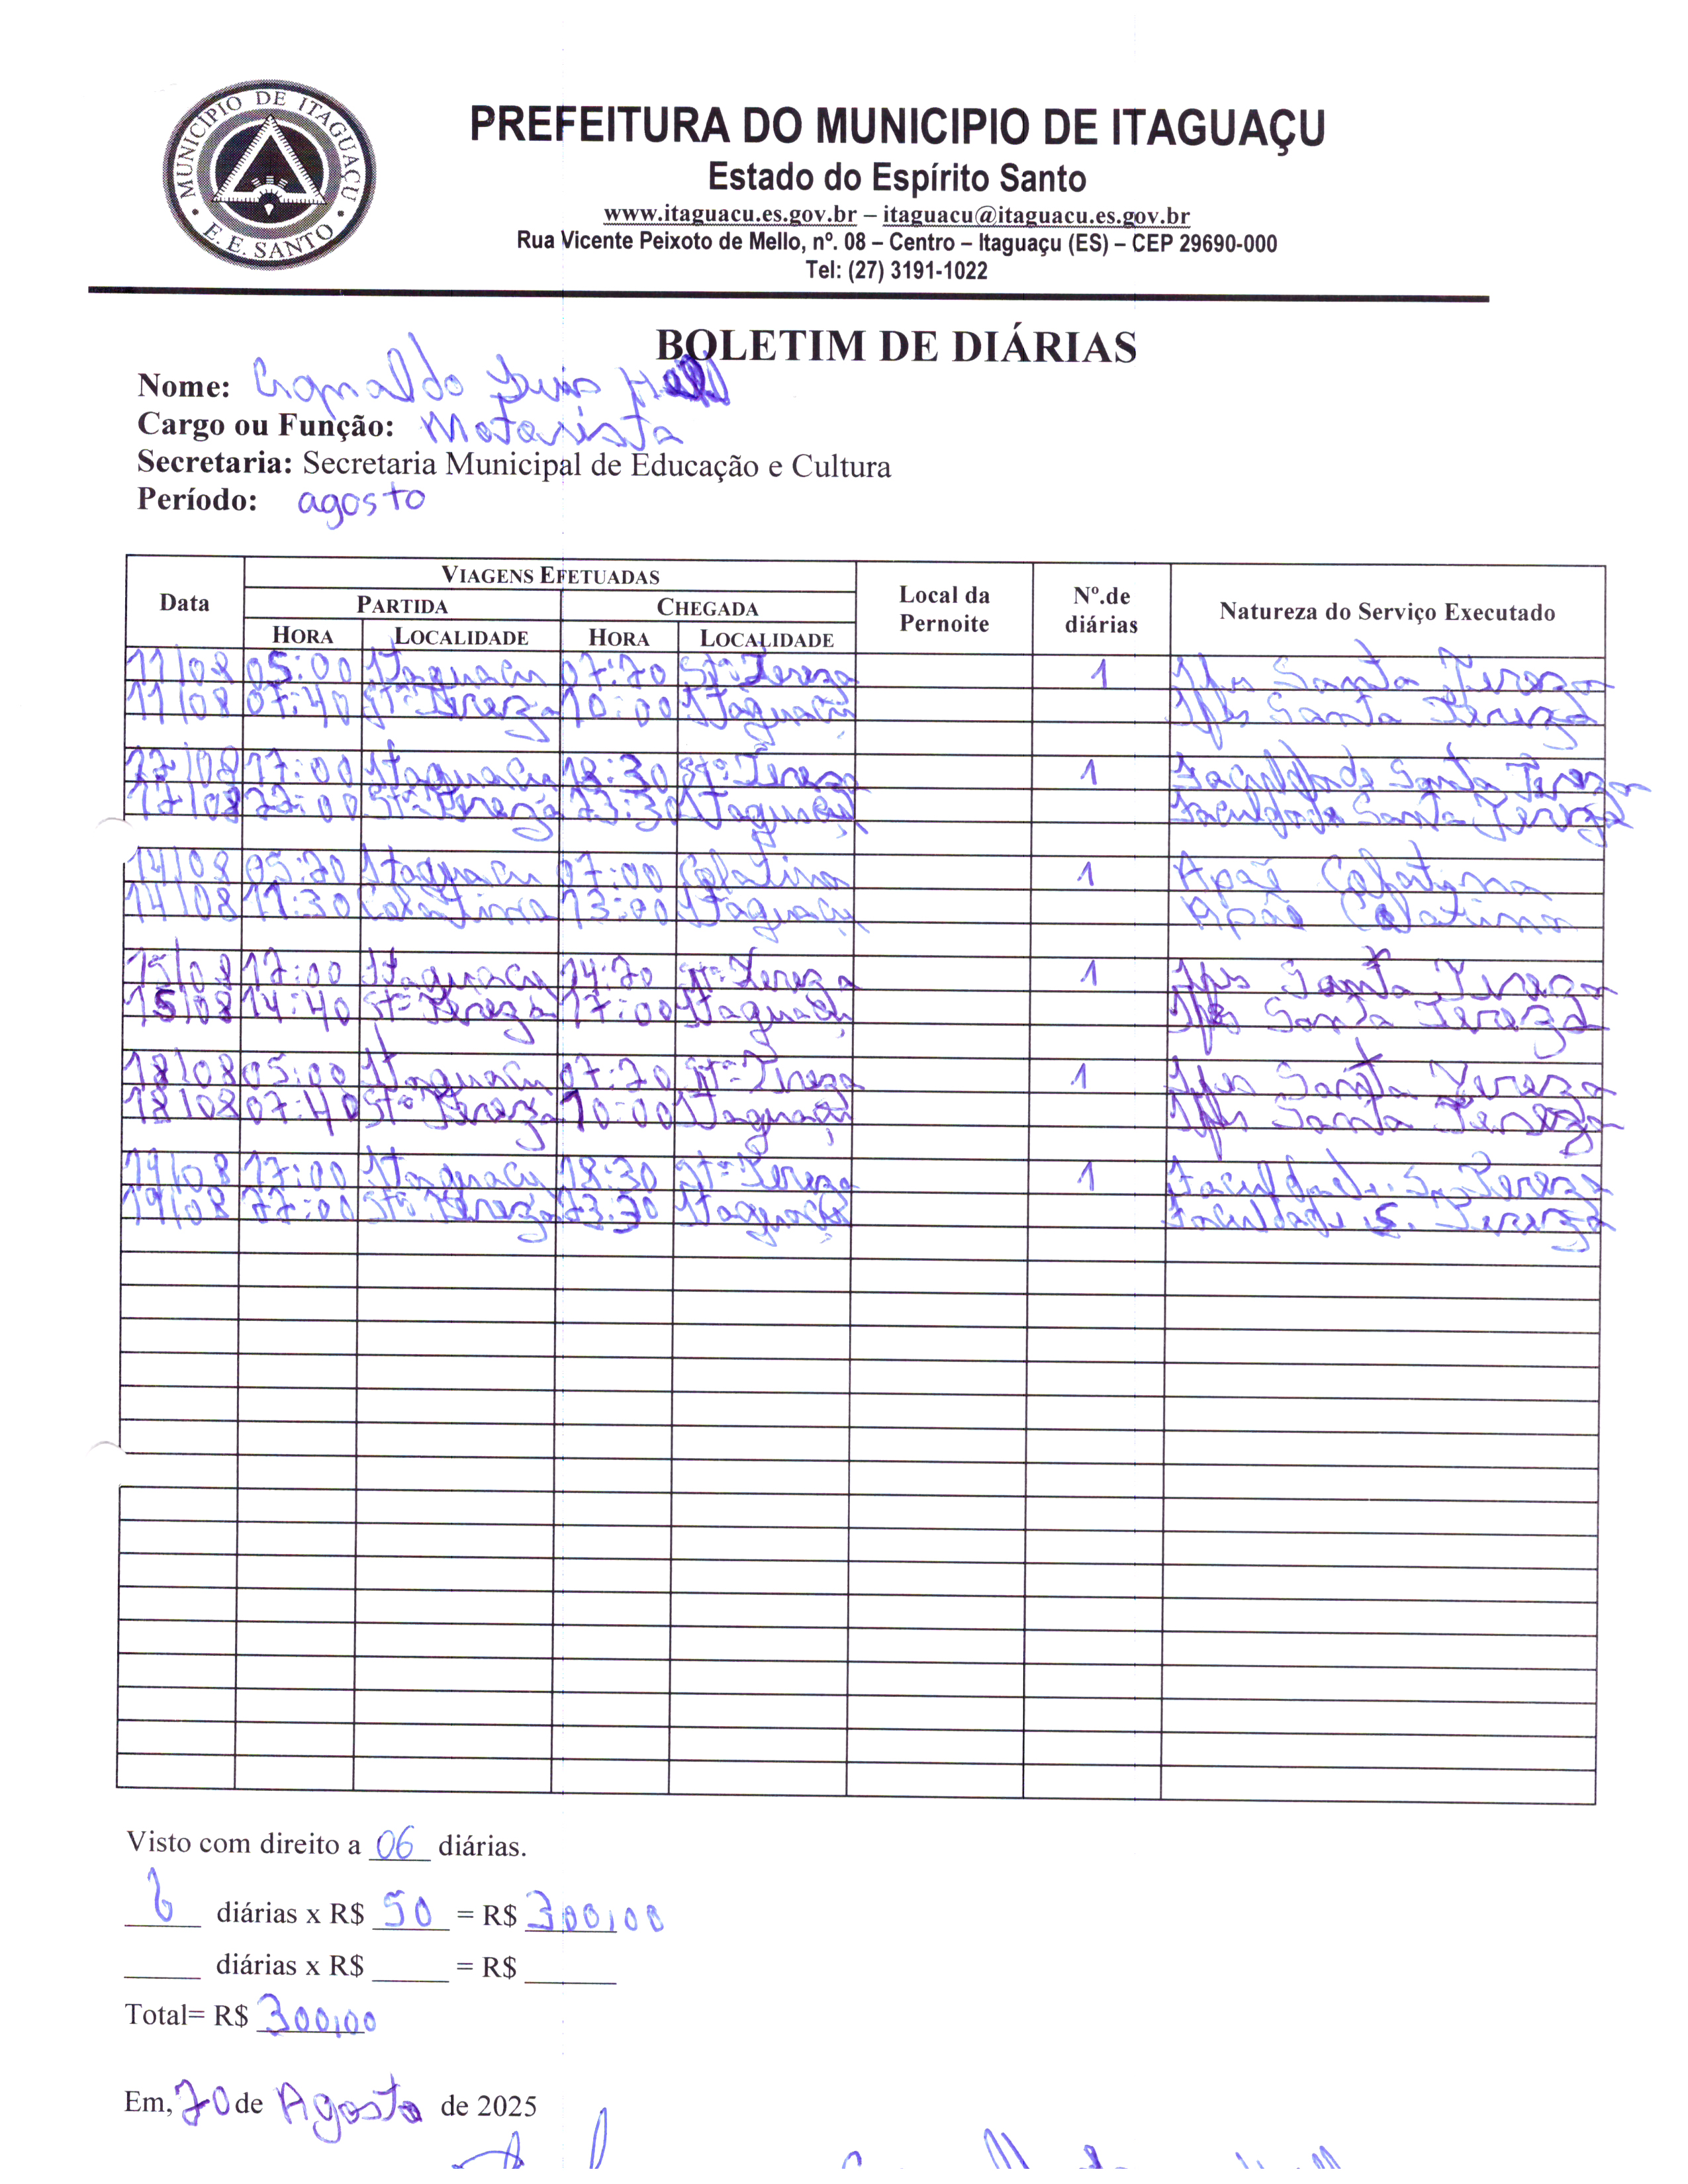 MUNICÍPIO DE ITAGUAÇU
E. E. SANTO
PREFEITURA DO MUNICIPIO DE ITAGUAÇU
Estado do Espírito Santo
www.itaguacu.es.gov.br – itaguacu@itaguacu.es.gov.br
Rua Vicente Peixoto de Mello, nº. 08 – Centro – Itaguaçu (ES) – CEP 29690-000
Tel: (27) 3191-1022
BOLETIM DE DIÁRIAS
Nome: Luis
Cargo ou Função: Motorista
Secretaria: Secretaria Municipal de Educação e Cultura
Período: agosto
VIAGENS EFETUADAS
Data PARTIDA CHEGADA Local da Pernoite Nº.de diárias Natureza do Serviço Executado
HORA LOCALIDADE HORA LOCALIDADE
11/08 05:00 Itaguaçu 07:20 Stª Tereza 1 Ifes Santa Tereza
11/08 07:40 Stª Tereza 10:00 Itaguaçu Ifes Santa Tereza
12/08 17:00 Itaguaçu 18:30 Stª Tereza 1 Faculdade Santa Tereza
12/08 22:00 Stª Tereza 23:30 Itaguaçu Faculdade Santa Tereza
14/08 05:20 Itaguaçu 07:00 Colatina 1 Apae Colatina
14/08 11:30 Colatina 13:00 Itaguaçu Apae Colatina
15/08 12:00 Itaguaçu 14:20 Stª Tereza 1 Ifes Santa Tereza
15/08 14:40 Stª Tereza 17:00 Itaguaçu Ifes Santa Tereza
18/08 05:00 Itaguaçu 07:20 Stª Tereza 1 Ifes Santa Tereza
18/08 07:40 Stª Tereza 10:00 Itaguaçu Ifes Santa Tereza
19/08 17:00 Itaguaçu 18:30 Stª Tereza 1 Faculdade S. Tereza
19/08 22:00 Stª Tereza 23:30 Itaguaçu Faculdade S. Tereza
Visto com direito a 06 diárias.
6 diárias x R$ 50 = R$ 300,00
diárias x R$ = R$
Total= R$ 300,00
Em, 20 de Agosto de 2025